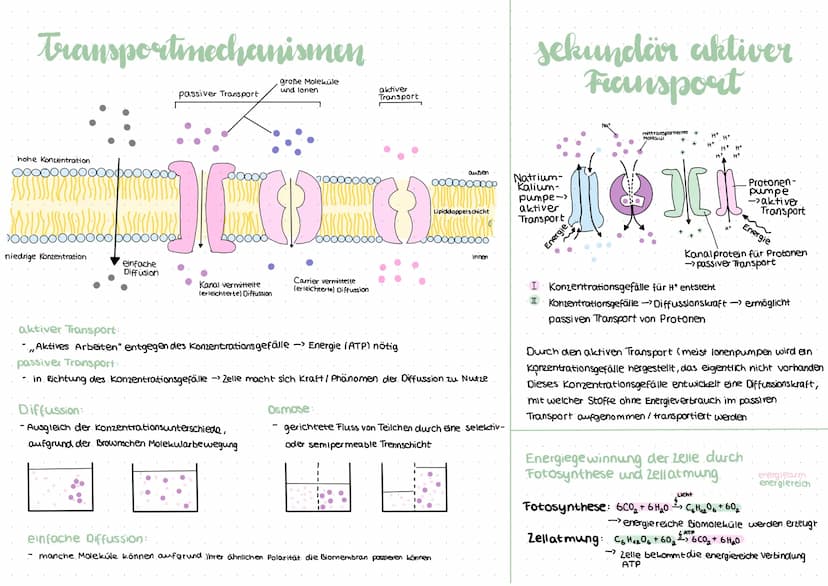 Transportmechanismen
große Moleküle
und Ionen
passiver Transport
aktiver
Transport
hohe Konzentration
außen
Lipiddoppelschicht
niedrige Konzentration
innen
einfache
Diffusion
Kanal vermittelte
(erleichterte) Diffusion
Carrier vermittelte
(erleichterte) Diffusion
aktiver Transport:
- „Aktives Arbeiten" entgegen des Konzentrationsgefälle → Energie (ATP) nötig
passiver Transport:
- in Richtung des Konzentrationsgefälle → Zelle macht sich Kraft / Phänomen der Diffusion zu Nutze
Diffusion:
- Ausgleich der Konzentrationsunterschiede,
aufgrund der Brownschen Molekularbewegung
Osmose:
- gerichtete Fluss von Teilchen durch eine selektiv-
oder semipermeable Trennschicht
einfache Diffusion:
- manche Moleküle können aufgrund ihrer ähnlichen Polarität die Biomembran passieren können
sekundär aktiver
Transport
Na⁺
H⁺ H⁺
H⁺ H⁺
Natrium-
Kalium-
pumpe→
aktiver
Transport
Energie
Protonen-
pumpe
→aktiver
Transport
Energie
Kanalprotein für Protonen
→ passiver Transport
I Konzentrationsgefälle für H⁺ entsteht
II Konzentrationsgefälle → Diffusionskraft → ermöglicht
passiven Transport von Protonen
Durch den aktiven Transport (meist Ionenpumpen wird ein
Konzentrationsgefälle hergestellt, das eigentlich nicht vorhanden
Dieses Konzentrationsgefälle entwickelt eine Diffusionskraft,
mit welcher Stoffe ohne Energieverbrauch im passiven
Transport aufgenommen / transportiert werden
Energiegewinnung der Zelle durch
Fotosynthese und Zellatmung
energiearm
energiereich
Fotosynthese: 6CO₂ + 6H₂O →Licht C₆H₁₂O₆ + 6O₂
→ energiereiche Biomoleküle werden erzeugt
Zellatmung: C₆H₁₂O₆ + 6O₂ →ATP 6CO₂ + 6H₂O
→ Zelle bekommt die energiereiche Verbindung
ATP